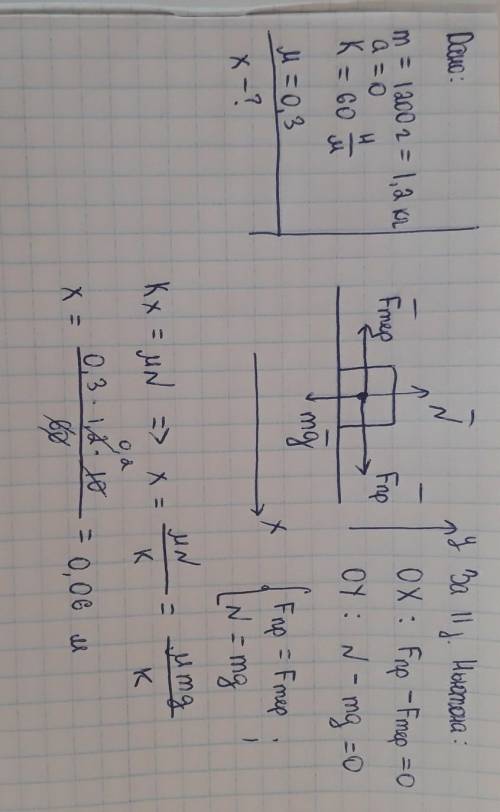 Дано:
m = 1200 г = 1,2 кг
a = 0
K = 60 Н/м
μ = 0,3
x - ?
y
N̄
F̄тер
F̄пр
mḡ
x
За II з. Ньютона:
OX: Fпр - Fтер = 0
OY: N - mg = 0
{ Fпр = Fтер ;
N = mg
Kx = μN => x = μN/K = μmg/K
x = 0,3 · 1,2 · 10 / 60 = 0,06 м
0,2